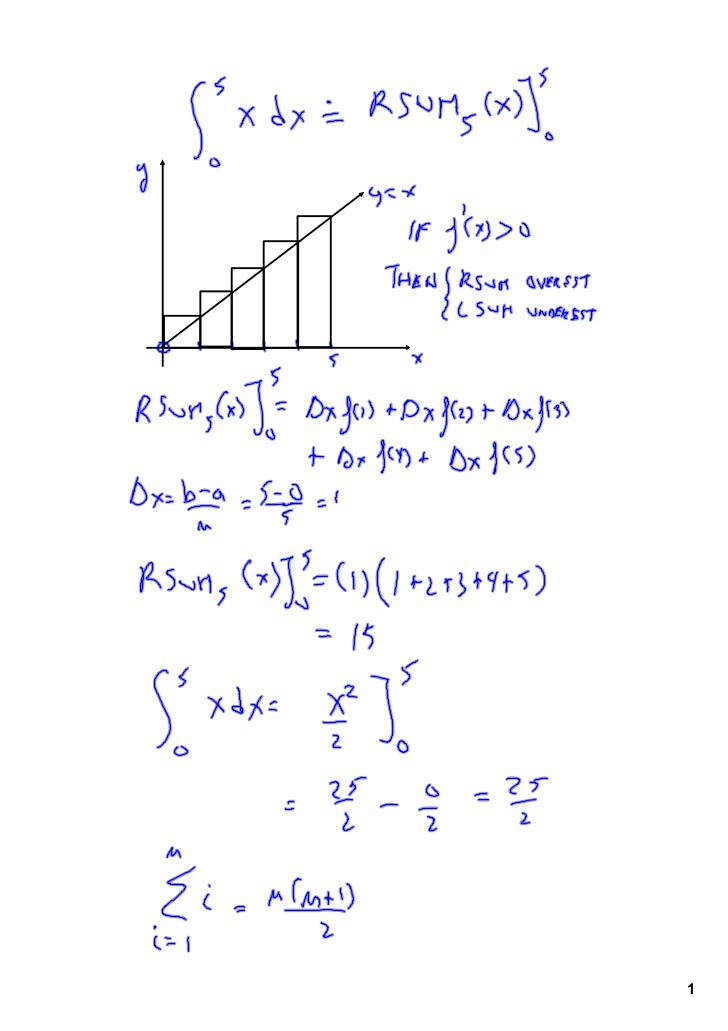 ∫₀⁵ x dx ≐ RSUM₅(x)]₀⁵
y
y=x
IF f'(x)>0
THEN { RSUM OVEREST
{ LSUM UNDEREST
5
x
RSUM₅(x)]₀⁵ = Dx f(1) + Dx f(2) + Dx f(3)
+ Dx f(4) + Dx f(5)
Dx = (b-a)/n = (5-0)/5 = 1
RSUM₅(x)]₀⁵ = (1)(1+2+3+4+5)
= 15
∫₀⁵ x dx = x²/2 ]₀⁵
= 25/2 - 0/2 = 25/2
∑ᵢ₌₁ⁿ i = n(n+1)/2
1